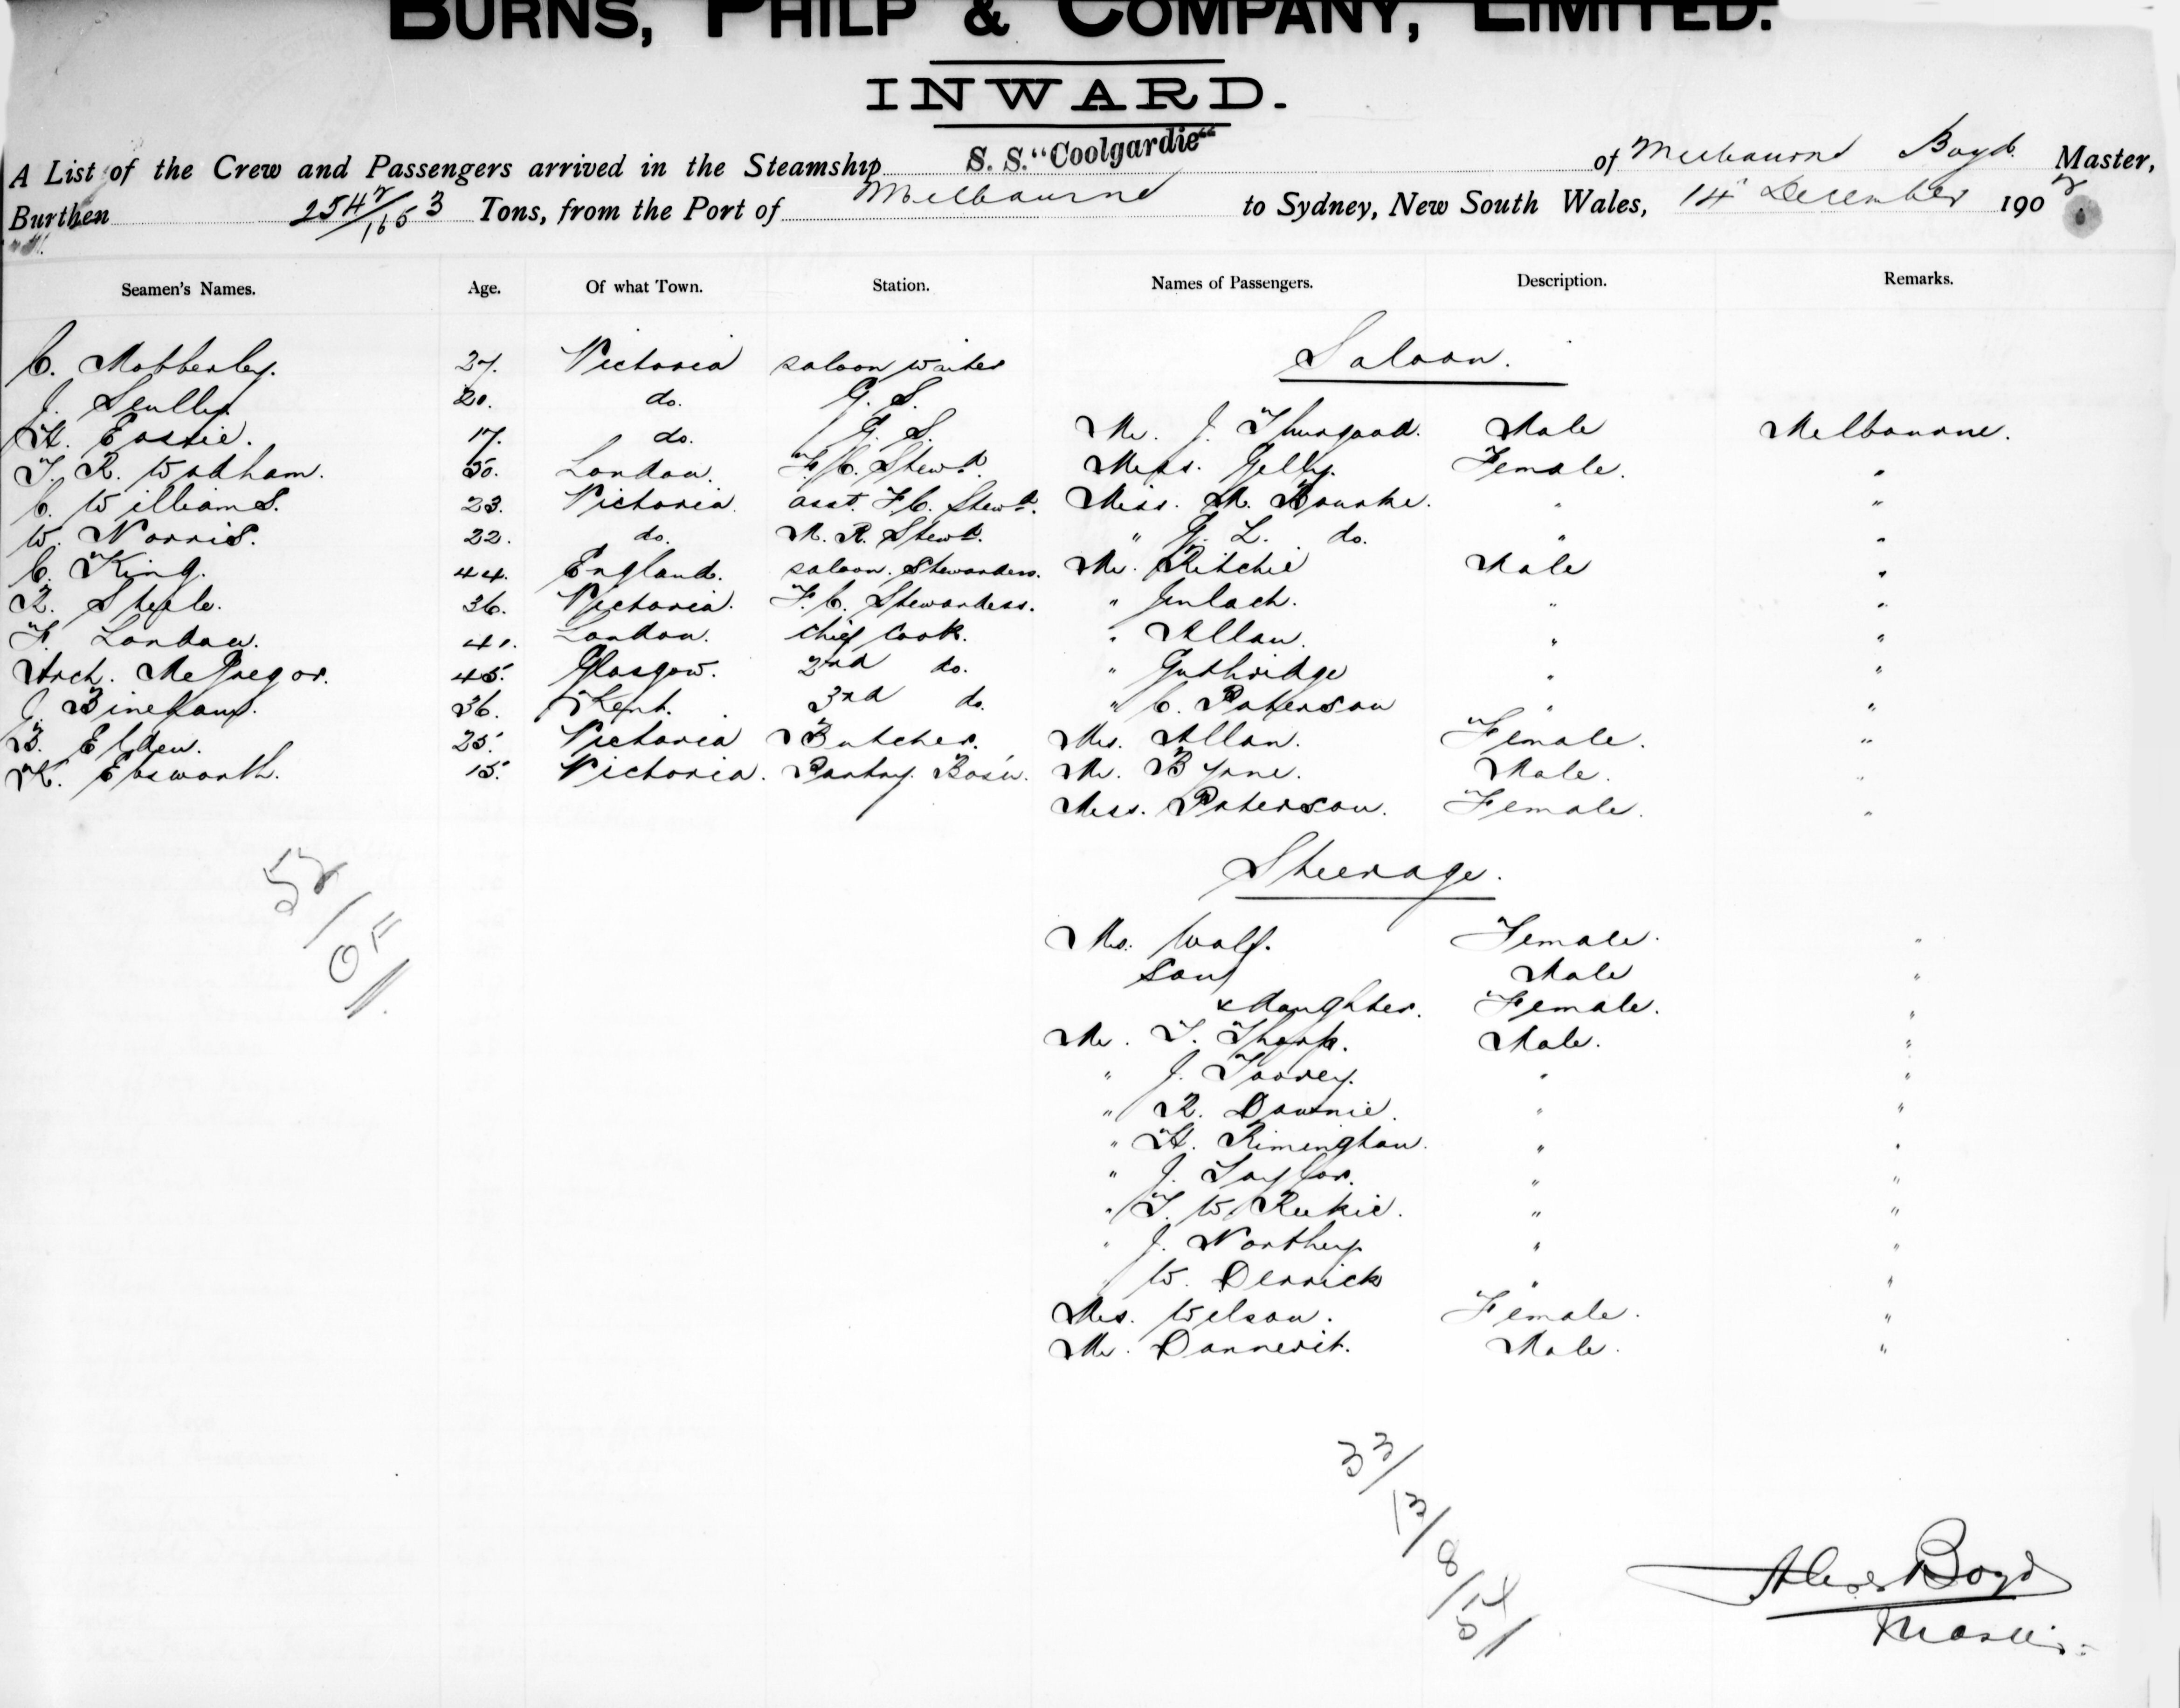 BURNS, PHILP & COMPANY, LIMITED.
INWARD.
A List of the Crew and Passengers arrived in the Steamship S. S. "Coolgardie" of Melbourne Boyd. Master,
Burthen 2542/1653 Tons, from the Port of Melbourne to Sydney, New South Wales, 14 December 1902
Seamen's Names. Age. Of what Town. Station. Names of Passengers. Description. Remarks.
C. Mobberley. 27. Victoria saloon waiter Saloon.
J. Scully. 20. do. G. S.
H. Eassie. 17. do. G. S. Mr. J. Thurgood. Male Melbourne.
T. R. Wadham. 50. London. F. C. Stewd. Miss. Gelly. Female. "
C. Williams. 23. Victoria. asst. F C. Stewd. Miss. M. Bourke. " "
W. Norris. 22. do. M. R. Stewd. " G. L. do. " "
C. King. 44. England. saloon. Stewardess. Mr. Ritchie Male "
R. Steele. 36. Victoria. F. C. Stewardess. " Imlach. " "
F. London. 41. London. Chief Cook. " Allan. " "
Arch. McGregor. 45. Glasgow. 2nd do. " Guthridge " "
J. 36. Kent. 3rd do. " C. Paterson " "
B. Elden. 25. Victoria Butcher. Mrs. Allan. Female. "
K. Ebsworth. 15. Victoria. Pantry. Mr. Byrne. Male. "
Miss. Paterson. Female. "
Steerage.
Mrs. Wolf. Female. "
Son Male "
& daughter. Female. "
52/0/
Mr. T. Tharp. Male. "
" J. Toovey. " "
" R. Downie. " "
" H. Rimington. " "
" J. Taylor. " "
" T. W. Reekie. " "
" J. Northey " "
" W. Derrick " "
Mrs. Wilson. Female. "
Mr. Dannevit. Male. "
33/13/8/54/
Alexr Boyd
Master